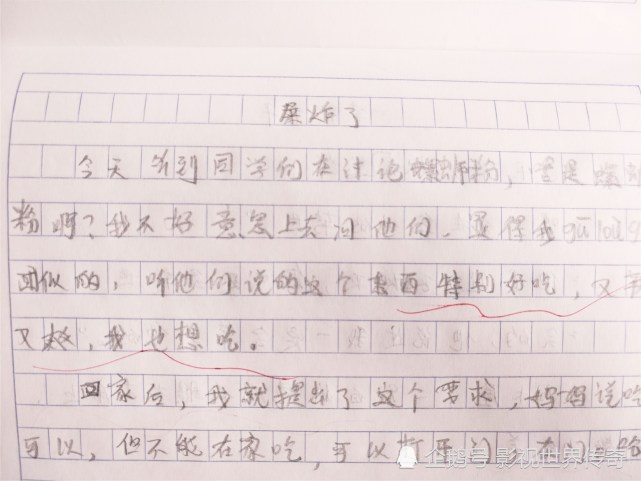 臭炸了
今天听到同学们在讨论螺蛳粉，啥是螺蛳
粉啊？我不好意思上去问他们，显得我gū lòu g
闻似的，听他们说的这个东西特别好吃，又
又，我也想吃。
回家后，我就提出了这个要求，妈妈说吃
可以，但不能在家吃，可以打开门，在门
企鹅号 影视世界传奇